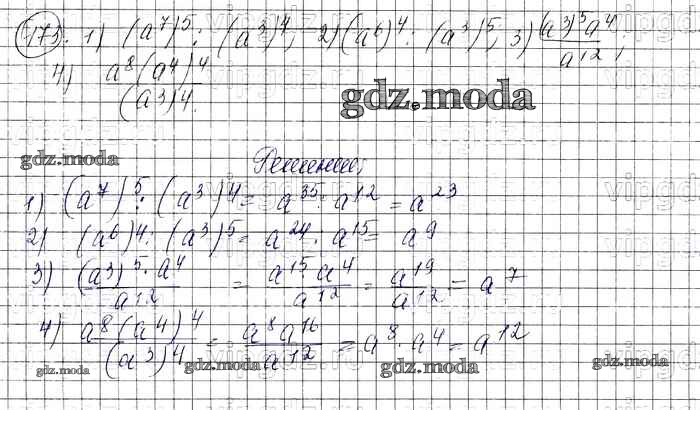 473. 1) (a⁷)⁵ : (a³)⁴, 2) (a⁶)⁴ : (a³)⁵, 3) (a³)⁵a⁴ / a¹²,
4) a⁸(a⁴)⁴ / (a³)⁴.
gdz.moda
gdz.moda
Решение,
1) (a⁷)⁵ : (a³)⁴ = a³⁵ : a¹² = a²³
2) (a⁶)⁴ : (a³)⁵ = a²⁴ : a¹⁵ = a⁹
3) (a³)⁵·a⁴ / a¹² = a¹⁵·a⁴ / a¹² = a¹⁹ / a¹² = a⁷
4) a⁸(a⁴)⁴ / (a³)⁴ = a⁸a¹⁶ / a¹² = a⁸·a⁴ = a¹²
gdz.moda gdz.moda gdz.moda gdz.moda